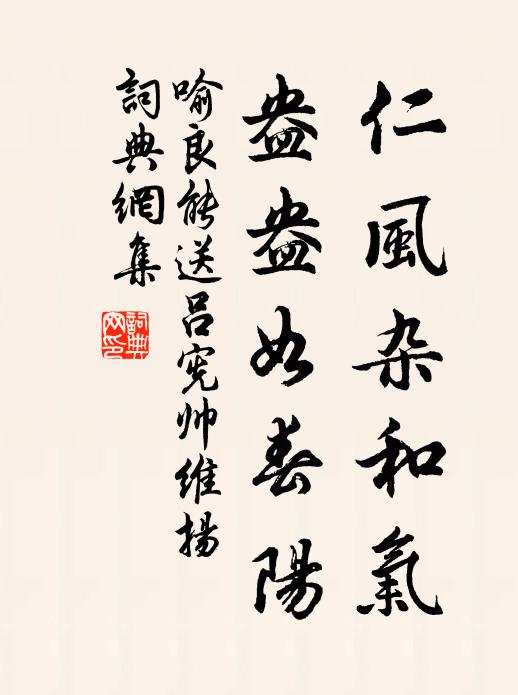 仁風杂和氣
盎盎如春陽
喻良能送呂宪帅维揚
詞典網集
詞典
网印